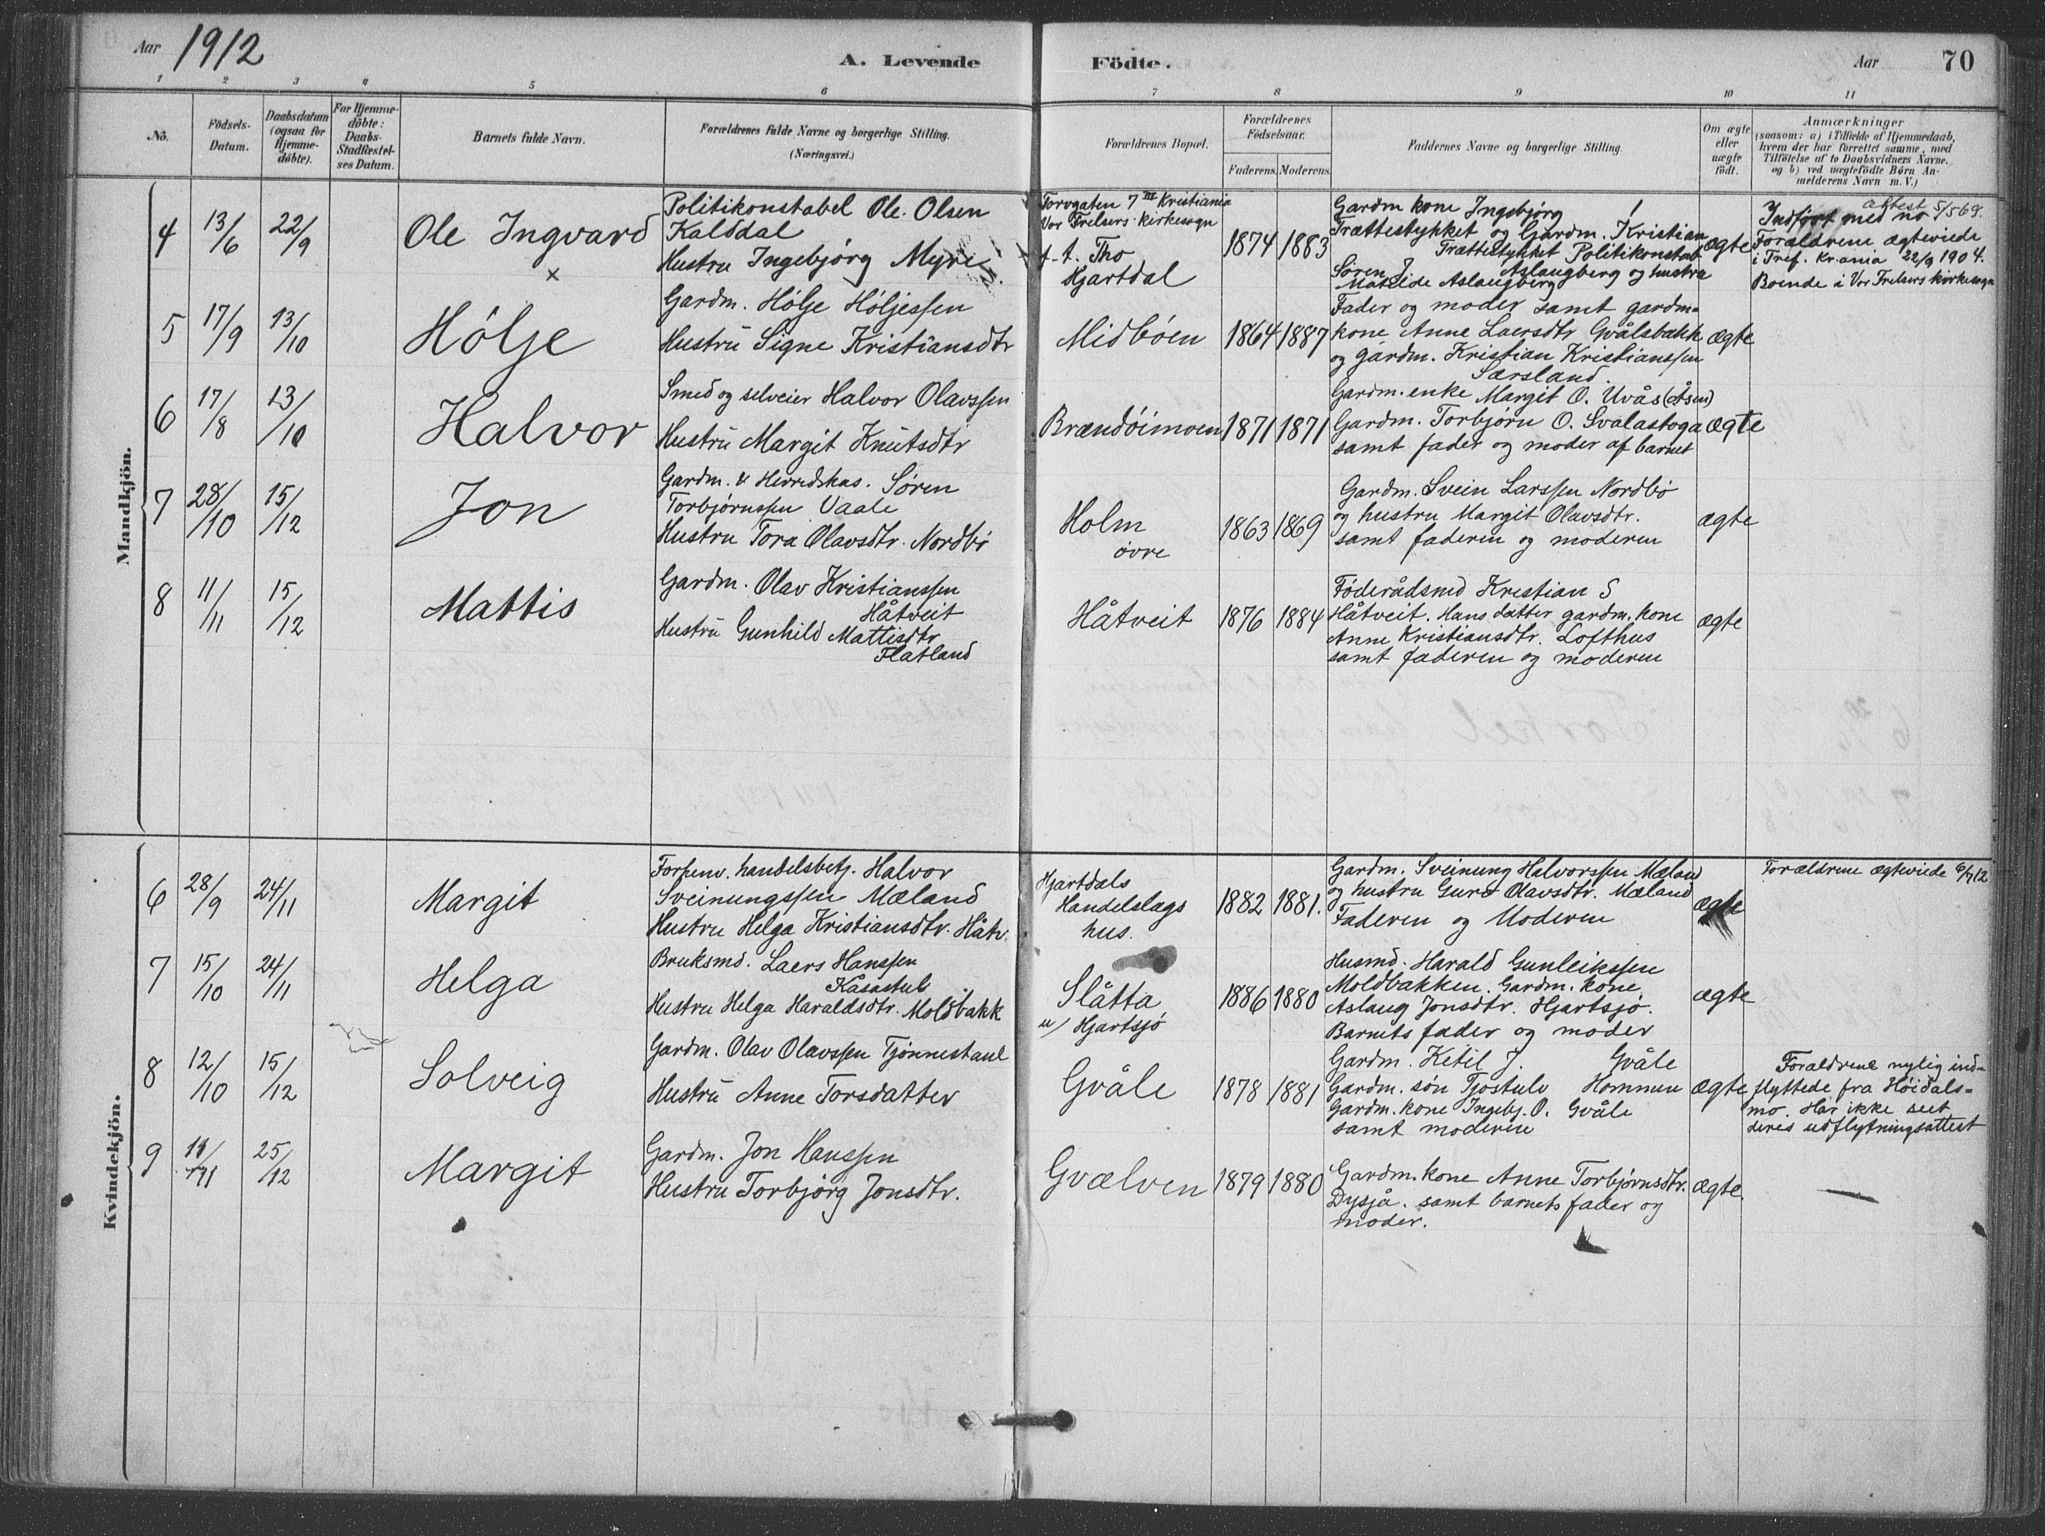 Aar 1912
A. Levende Födte.
Aar 70
1 2 3 4 5 6 7 8 9 10 11
No.
Födsels-
Datum.
Daabsdatum
(ogsaa for
Hjemme-
döbte).
For Hjemme-
döbte:
Daabs-
Stadfæstel-
ses Datum.
Barnets fulde Navn.
Forældrenes fulde Navne og borgerlige Stilling.
(Næringsvei.)
Forældrenes Bopæl.
Forældrenes
Födselsaar.
Faderens. Moderens.
Faddernes Navne og borgerlige Stilling.
Om ægte
eller
uægte
födt.
Anmærkninger
(saasom: a) i Tilfælde af Hjemmedaab,
hvem der har forrettet samme, med
Tilföielse af to Daabsvidners Navne.
og b) ved uægtefödte Börn An-
melderens Navn m. V.)
Mandkjön.
4 13/6 22/9 Ole Ingvard
Politikonstabel Ole Olsen
Kalddal
Hustru Ingebjørg Myre
Torvgaten 7 III Kristiania
Vor Frelsers kirkesogn
f. t. Tho
Hjartdal
1874 1883
Gardm kone Ingebjørg
Trættestykket og Gardm. Kristian
Trættestykket Politikonstab
Søren J. Aslaugberg og hustru
Matilde Aslaugberg
ægte
attest 5/5 69.
Indført med no
Forældrene ægteviede
i Tref. Kr.ania 22/9 1904.
Boende i Vor Frelsers kirkesogn
5 17/9 13/10 Hølje
Gardm. Hølje Høljessen
Hustru Signe Kristiansdtr
Midbøen 1864 1887
Fader og moder samt gardm-
kone Anne Laersdtr Gvålsbakk
og gardm. Kristian Kristianssen
Særsland.
ægte
6 17/8 13/10 Halvor
Smed og selveier Halvor Olavssen
Hustru Margit Knutsdtr
Brændøimoen 1871 1871
Gardm. enke Margit O. Uvås (Åsen)
Gardm. Torbjørn O. Svalastoga
samt fader og moder af barnet
ægte
7 28/10 15/12 Jon
Gardm. & Herredskas. Søren
Torbjørnssen Vaale
Hustru Tora Olavsdtr. Nordbø
Holm
øvre
1863 1869
Gardm. Svein Larssen Nordbø
og hustru Margit Olavsdtr.
samt faderen og moderen
ægte
8 11/11 15/12 Mattis
Gardm. Olav Kristianssen
Håtveit
Hustru Gunhild Mattisdtr
Flatland
Håtveit 1876 1884
Føderådsmd Kristian S
Håtveit. Hans datter gardm. kone
Anne Kristiansdtr. Lofthus
samt faderen og moderen
ægte
Kvindekjön.
6 28/9 24/11 Margit
Forhenv. handelsbetj. Halvor
Sveinungssen Mæland
Hustru Helga Kristiansdtr. Håtv.
Hjartdals
Handelslags
hus.
1882 1881.
Gardm. Sveinung Halvorssen Mæland
og hustru Guro Olavsdtr. Mæland
Faderen og Moderen
ægte
Forældrene ægteviede 6/7 12
7 15/10 24/11 Helga
Bruksmd. Laers Hanssen
Kåsastul
Hustru Helga Haraldsdtr. Moldbakk
Slåtta
u/ Hjartsjø
1886 1880
Husmd. Harald Gunleikssen
Moldbakken. Gardm. kone
Aslaug Jonsdtr. Hjartsjø.
Barnets fader og moder
ægte
8 12/10 15/12 Solveig
Gardm. Olav Olavssen Tjønnestaul
Hustru Anne Torsdatter
Gvåle 1878 1881
Gardm. Ketil J. Gvåle
Gardm. søn Tjostulv Hommen
Gardm. kone Ingebj. O. Gvåle
samt moderen
ægte
Forældrene nylig ind-
flyttede fra Høidals-
mo. Har ikke seet
deres udflytningsattest
9 11/11 25/12 Margit
Gardm. Jon Hanssen
Hustru Torbjørg Jonsdtr.
Gvælven 1879 1880
Gardm. kone Anne Torbjørnsdtr.
Dysjå. samt barnets fader og
moder.
ægte.